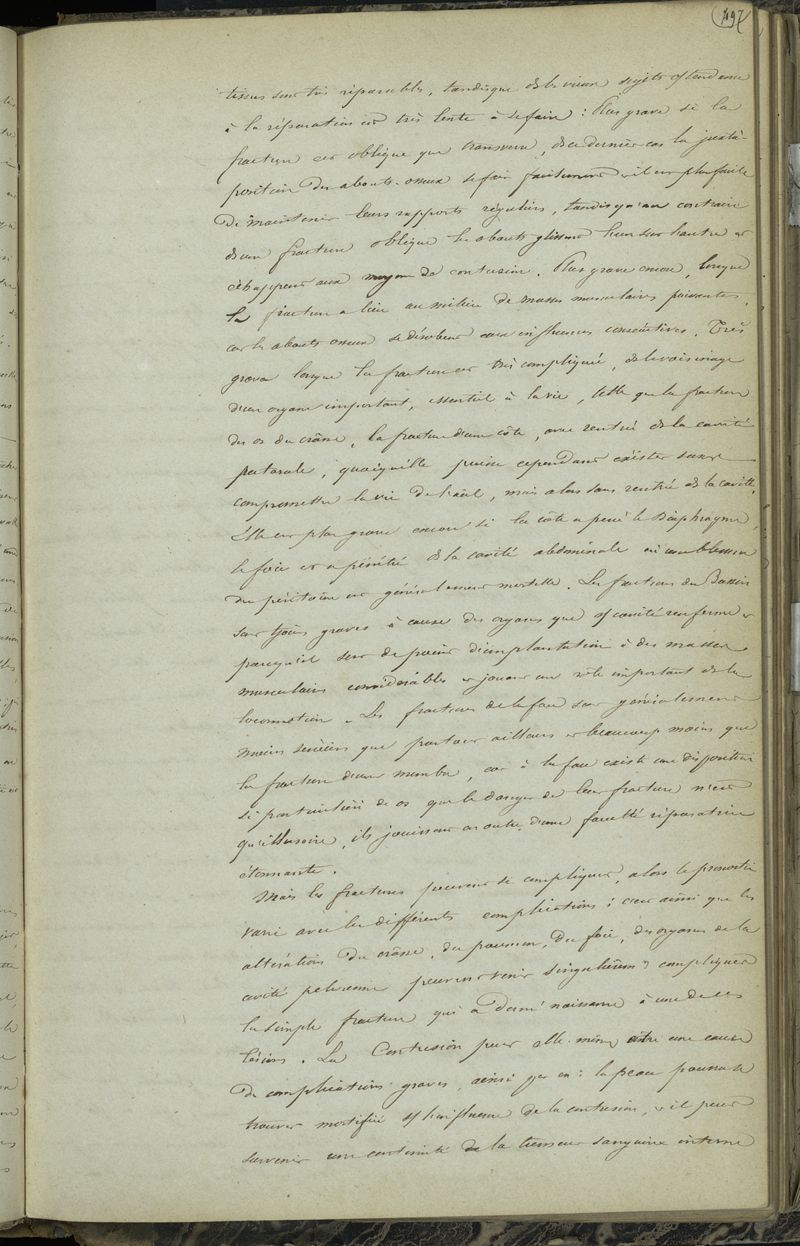 497
tissus sont très réparables, tandisque ds les vieux sujets cette tendance
à la réparation est très lente à se faire : Plus grave si la
fracture est oblique que transverse, ds ce dernier cas la juxta-
position des abouts osseux se fait facilement et il est plus facile
de maintenir leurs rapports réguliers, tandis qu'au contraire
ds une fracture oblique les abouts glissent l'un sur l'autre et
échappent aux moyens de contension. Plus grave encore, lorsque
la fracture a lieu au milieu de masses musculaires puissantes,
car les abouts osseux se dérobent aux influences consécutives. Très
grave lorsque la fracture est très compliquée, ds le voisinage
d'un organe important, essentiel à la vie, telle que la fracture
des os du crâne, la fracture d'une côte, avec rentrée ds la cavité
pectorale, quoiqu'elle puisse cependant exister sans
compromettre la vie de l'anl, mais alors sans rentrée ds la cavité,
Elle est plus grave encore si la côte a percé le Diaphragme,
le foie et a pénétré ds la cavité abdominale où une blessure
du péritoine est généralement mortelle. Les fractures du Bassin
sont tjours graves à cause des organes que cette cavité renferme et
parcequ'il sert de point d'implantation à des masses
musculaires considérables et jouent un rôle important ds la
locomotion. Les fractures de la face sont généralement
moins sérieuses que partout ailleurs et beaucoup moins que
la fracture d'un membre, car à la face existe une disposition
si particulière de os que le danger de leur fracture n'est
qu'illusoire, ils jouissent en outre d'une faculté réparatrice
étonnante.
Mais les fractures peuvent se compliquer, alors le pronostic
varie avec les différentes complications ; c'est ainsi que les
altérations du crâne, du poumon, du foie, des organes de la
cavité pelvienne peuvent venir singulièremt compliquer
la simple fracture qui a donné naissance à une de ces
lésions. La Contusion peut elle-même être une cause
de complications graves, ainsi par ex : la peau pourra se
trouver mortifiée ss l'influence de la contusion, et il peut
survenir une continuité de la tumeur sanguine interne